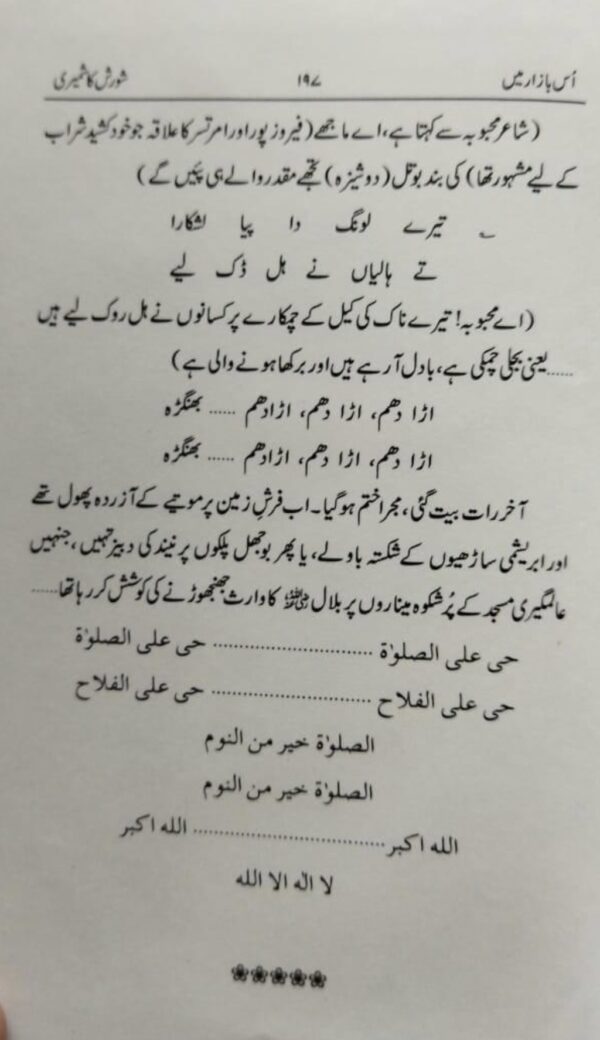 اُس بازار میں ۱۹۷ شورش کاشمیری
(شاعر محبوبہ سے کہتا ہے، اے ماجھے (فیروز پور اور امرتسر کا علاقہ جو خود کشید شراب
کے لیے مشہور تھا) کی بند بوتل (دوشیزہ) تجھے مقدر والے ہی پئیں گے)
؎ تیرے لونگ دا پیا لشکارا
تے ہالیاں نے ہل ڈک لیے
(اے محبوبہ! تیرے ناک کی کیل کے چمکارے پر کسانوں نے ہل روک لیے ہیں
......یعنی بجلی چمکی ہے، بادل آ رہے ہیں اور برکھا ہونے والی ہے)
اڑا دھم، اڑا دھم، اڑا دھم ...... بھنگڑہ
اڑا دھم، اڑا دھم، اڑا دھم ...... بھنگڑہ
آخر رات بیت گئی، مجرا ختم ہو گیا۔ اب فرشِ زمین پر موتیے کے آزردہ پھول تھے
اور ابریشمی ساڑھیوں کے شکستہ باولے، یا پھر بوجھل پلکوں پر نیند کی دبیز تہیں، جنہیں
عالمگیری مسجد کے پُر شکوہ میناروں پر بلال ؓ کا وارث جھنجھوڑنے کی کوشش کر رہا تھا......
حی علی الصلوٰۃ ........................ حی علی الصلوٰۃ
حی علی الفلاح ........................ حی علی الفلاح
الصلوٰۃ خیر من النوم
الصلوٰۃ خیر من النوم
اللہ اکبر ............................ اللہ اکبر
لا الٰہ الا اللہ